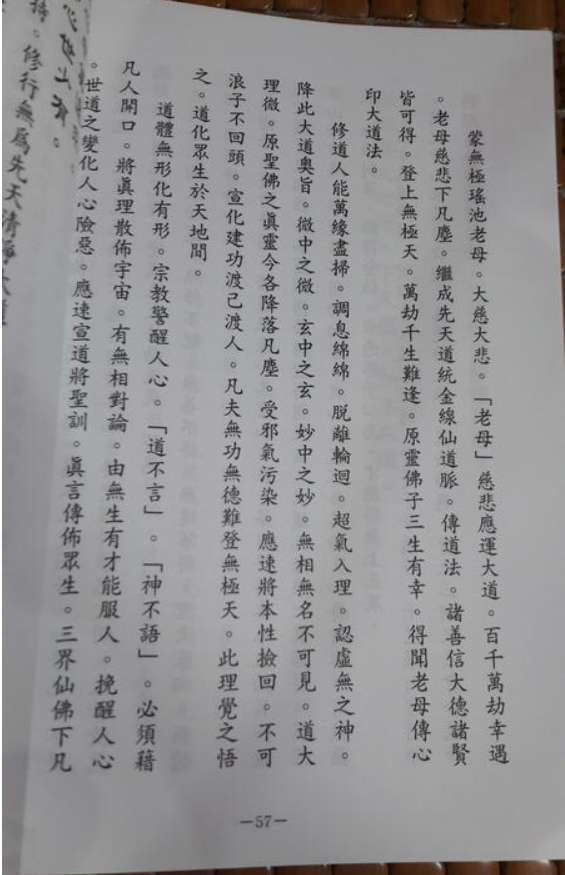 蒙無極瑤池老母。大慈大悲。「老母」慈悲應運大道。百千萬劫幸遇
。老母慈悲下凡塵。繼成先天道統金線仙道脈。傳道法。諸善信大德諸賢
皆可得。登上無極天。萬劫千生難逢。原靈佛子三生有幸。得聞老母傳心
印大道法。
修道人能萬緣盡掃。調息綿綿。脱離輪迴。超氣入理。認虛無之神。
降此大道奧旨。微中之微。玄中之玄。妙中之妙。無相無名不可見。道大
理微。原聖佛之眞靈今各降落凡塵。受邪氣污染。應速將本性撿回。不可
浪子不回頭。宣化建功渡己渡人。凡夫無功無德難登無極天。此理覺之悟
之。道化眾生於天地間。
道體無形化有形。宗教警醒人心。「道不言」。「神不語」。必須藉
凡人開口。將眞理散佈宇宙。有無相對論。由無生有才能服人。挽醒人心
。世道之變化人心險惡。應速宣道將聖訓。眞言傳佈眾生。三界仙佛下凡
。修行無為先天清淨大道
—57—